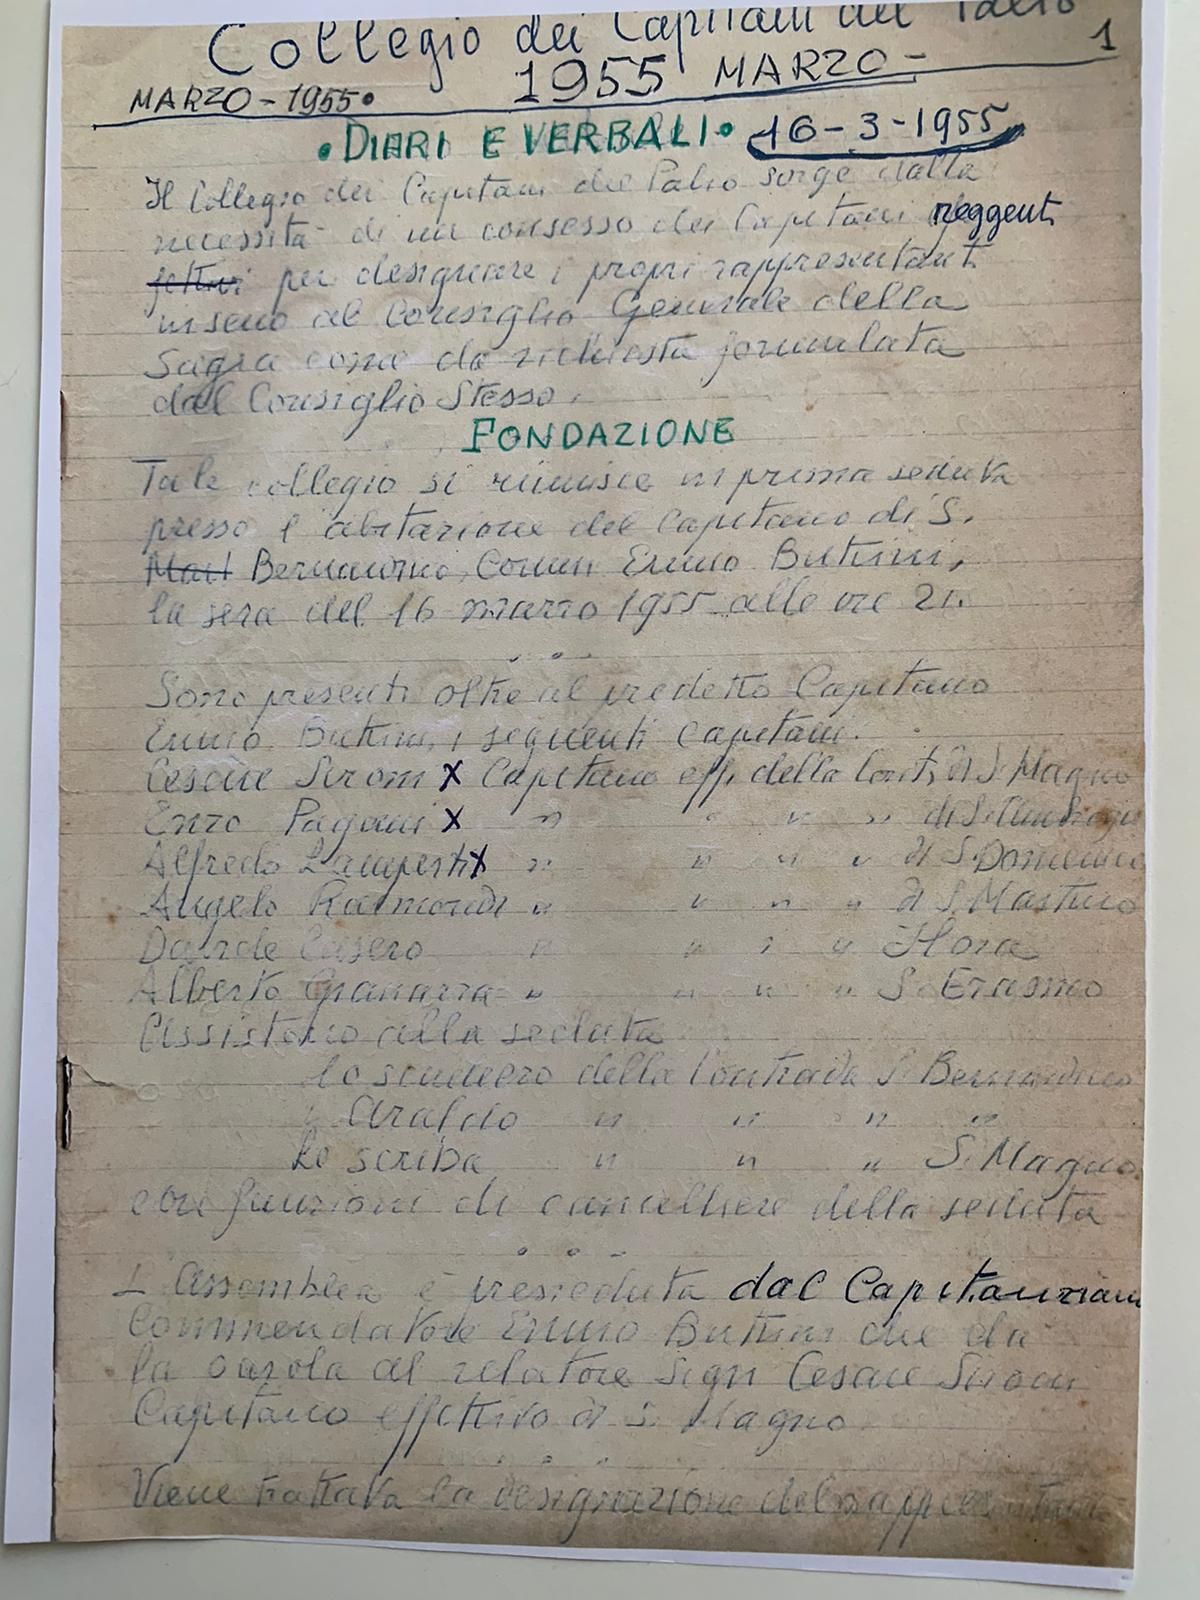 Collegio dei Capitani del Palio
1
1955 MARZO -
MARZO - 1955 •
• DIARI E VERBALI • 16-3-1955
Il Collegio dei Capitani del Palio sorge dalla
necessità di un consesso dei Capitani reggenti
fettivi per designare i propri rappresentanti
in seno al Consiglio Generale della
Sagra come da richiesta formulata
dal Consiglio Stesso.
FONDAZIONE
Tale collegio si riunisce in prima seduta
presso l'abitazione del Capitano di S.
Mart Bernardino, Comm Ennio Buttini,
la sera del 16 marzo 1955 alle ore 21.
Sono presenti oltre al predetto Capitano
Ennio Buttini, i seguenti capitani:
Cesare Sironi X Capitano eff. della Contr. di S. Magno
Enzo Pagani X " " " " di S. Ambrogio
Alfredo Lamperti X " " " " di S. Domenico
Angelo Raimondi " " " " di S. Martino
Davide Casero " " " " Flora
Alberto Granarra " " " " S. Erasmo
Assistono alla seduta
lo scudiero della Contrada S. Bernardino
" Araldo " " " "
Lo scriba " " " S. Magno
con funzioni di cancelliere della seduta
L'Assemblea è presieduta dal Capitanziano
Commendatore Ennio Buttini che da
la parola al relatore Sign Cesare Sironi
Capitano effettivo di S. Magno.
Viene trattata la designazione del rappresentante